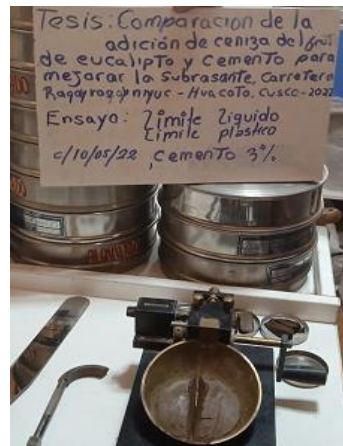 Tesis: Comparacion de la
adición de ceniza del fruto
de eucalipto y cemento para
mejorar la Subrasante, Carretera
- Huacoto, Cusco-2022
Ensayo: Límite Líquido
Límite plástico
c/10/05/22, cemento 3%